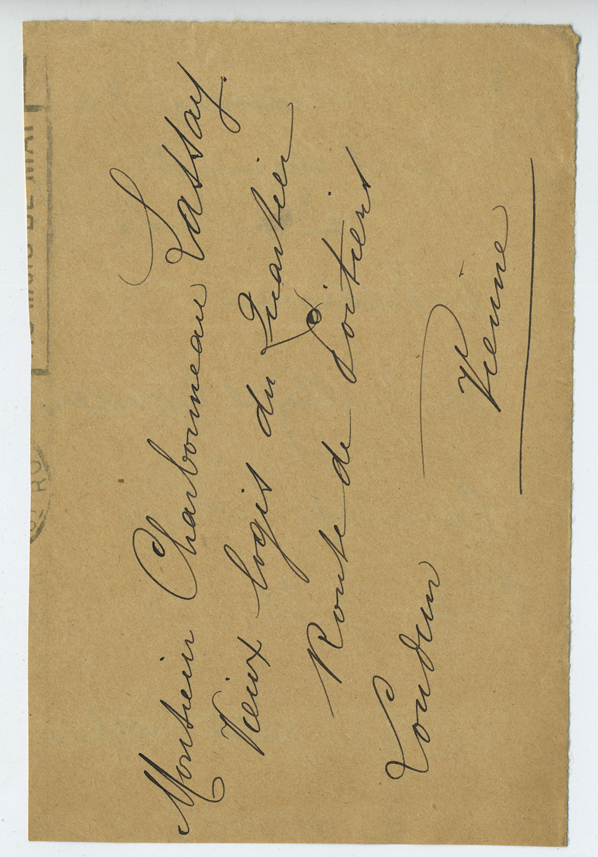 Monsieur Charbonneau Lassay.
Vieux logis du Quartier
Route de Poitiers
Loudun
Vienne